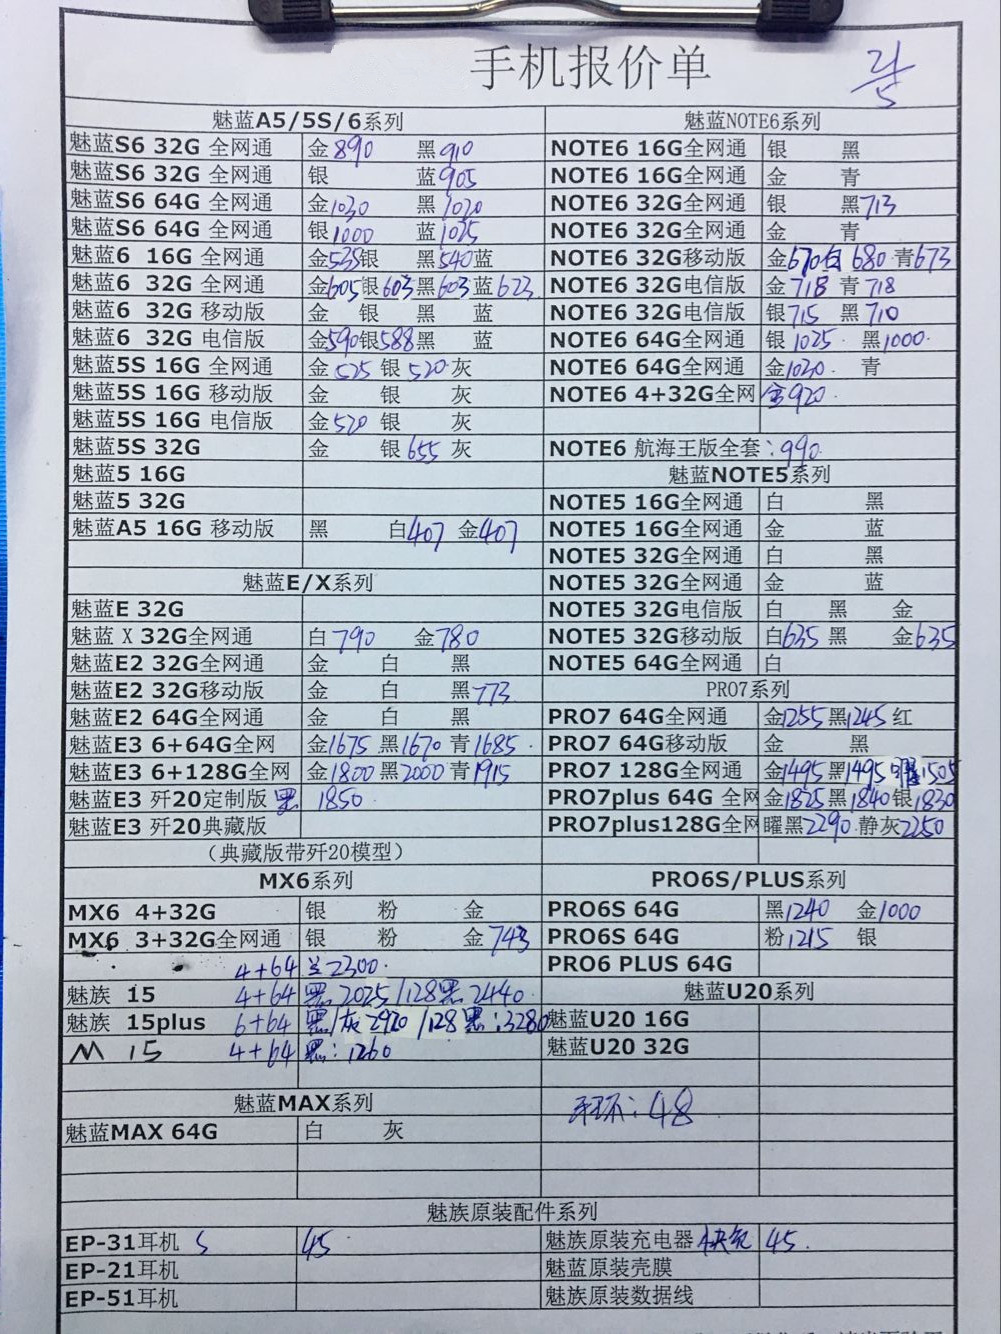 手机报价单
21/5
魅蓝A5/5S/6系列
魅蓝S6 32G 全网通 金890 黑910
魅蓝S6 32G 全网通 银 蓝905
魅蓝S6 64G 全网通 金1030 黑1020
魅蓝S6 64G 全网通 银1000 蓝1025
魅蓝6 16G 全网通 金535银 黑540蓝
魅蓝6 32G 全网通 金605银603黑603蓝623
魅蓝6 32G 移动版 金 银 黑 蓝
魅蓝6 32G 电信版 金590银588黑 蓝
魅蓝5S 16G 全网通 金525 银520 灰
魅蓝5S 16G 移动版 金 银 灰
魅蓝5S 16G 电信版 金520 银 灰
魅蓝5S 32G 金 银655 灰
魅蓝5 16G
魅蓝5 32G
魅蓝A5 16G 移动版 黑 白407 金407
魅蓝E/X系列
魅蓝E 32G
魅蓝 X 32G全网通 白790 金780
魅蓝E2 32G全网通 金 白 黑
魅蓝E2 32G移动版 金 白 黑773
魅蓝E2 64G全网通 金 白 黑
魅蓝E3 6+64G全网 金1675 黑1670 青1685
魅蓝E3 6+128G全网 金1800黑2000青1915
魅蓝E3 歼20定制版 黑 1850
魅蓝E3 歼20典藏版
（典藏版带歼20模型）
MX6系列
MX6 4+32G 银 粉 金
MX6 3+32G全网通 银 粉 金743
4+64 兰2300
魅族 15 4+64 黑2025/128黑2440
魅族 15plus 6+64 黑/灰2920/128黑:3280
M 15 4+64 黑:1260
魅蓝MAX系列
魅蓝MAX 64G 白 灰
魅蓝NOTE6系列
NOTE6 16G全网通 银 黑
NOTE6 16G全网通 金 青
NOTE6 32G全网通 银 黑713
NOTE6 32G全网通 金 青
NOTE6 32G移动版 金670白680青673
NOTE6 32G电信版 金718 青718
NOTE6 32G电信版 银715 黑710
NOTE6 64G全网通 银1025 黑1000
NOTE6 64G全网通 金1020 青
NOTE6 4+32G全网 金920
NOTE6 航海王版全套:990
魅蓝NOTE5系列
NOTE5 16G全网通 白 黑
NOTE5 16G全网通 金 蓝
NOTE5 32G全网通 白 黑
NOTE5 32G全网通 金 蓝
NOTE5 32G电信版 白 黑 金
NOTE5 32G移动版 白635黑 金635
NOTE5 64G全网通 白
PRO7系列
PRO7 64G全网通 金1255黑1245红
PRO7 64G移动版 金 黑
PRO7 128G全网通 金1495黑1495曜1505
PRO7plus 64G 全网 金1825黑1840银1830
PRO7plus128G全网 曜黑2290 静灰2250
PRO6S/PLUS系列
PRO6S 64G 黑1240 金1000
PRO6S 64G 粉1215 银
PRO6 PLUS 64G
魅蓝U20系列
魅蓝U20 16G
魅蓝U20 32G
手环:48
魅族原装配件系列
EP-31耳机 S 45
EP-21耳机
EP-51耳机
魅族原装充电器 快充 45
魅蓝原装壳膜
魅族原装数据线